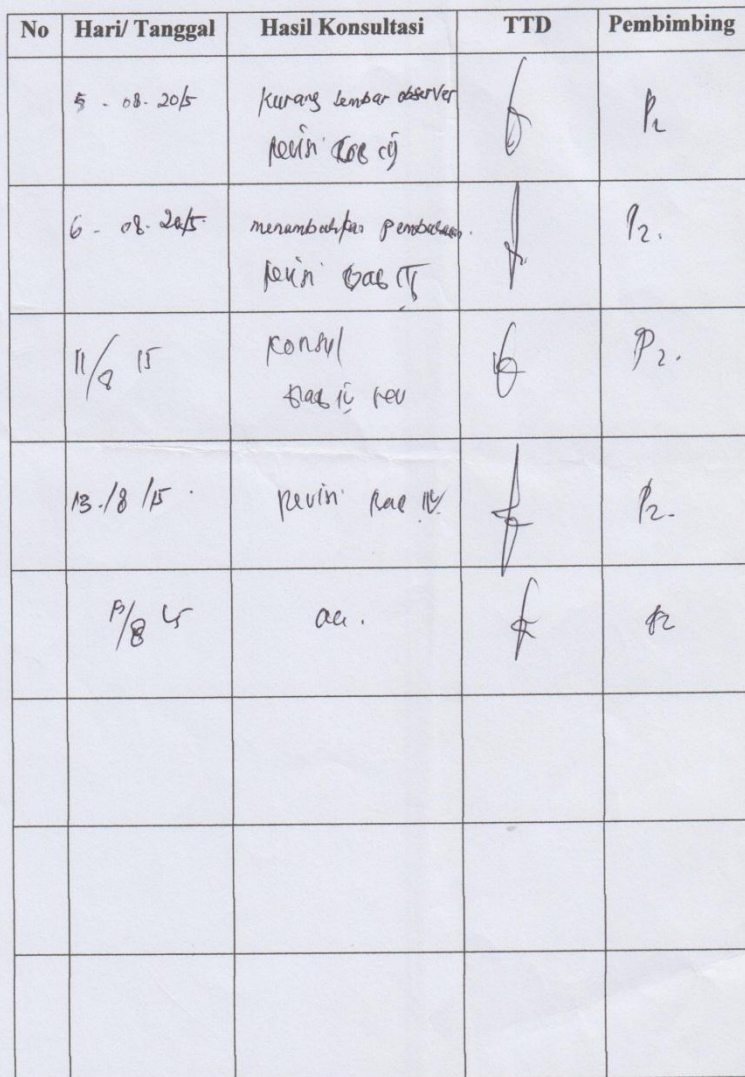 No Hari/ Tanggal Hasil Konsultasi TTD Pembimbing
5 - 08. 2015 Kurang lembar observer
revisi
6 - 08. 2015 menambahkan pembahasan. P2.
revisi bab
11/8 15 Konsul P2.
bab IV rev
13./8 /15 . revisi bab IV P2.
/8 15 acc . P2